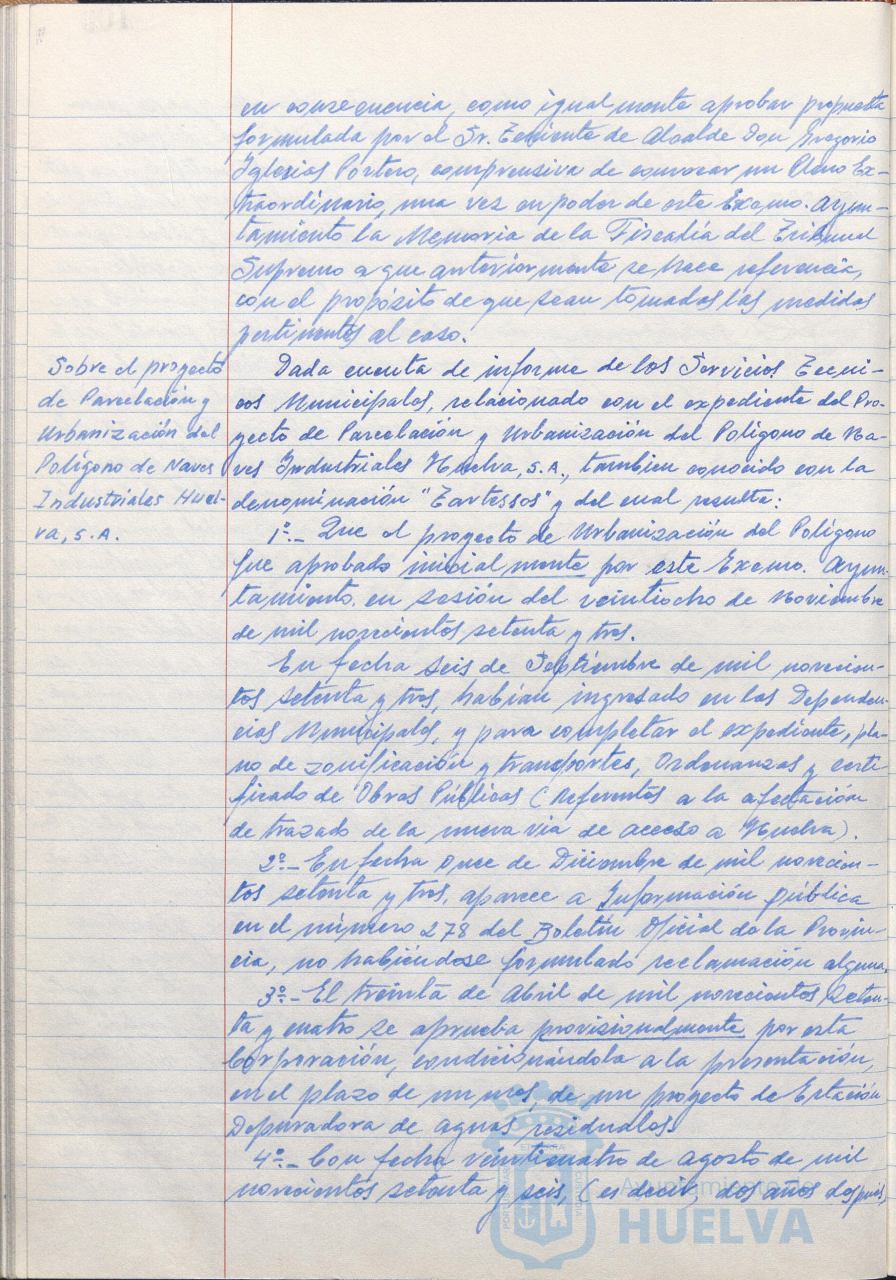 en consecuencia, como igualmente aprobar propuesta
formulada por el Sr. Teniente de Alcalde Don Gregorio
Iglesias Portero, comprensiva de convocar un Pleno Ex-
traordinario, una vez en poder de este Excmo. Ayun-
tamiento la Memoria de la Fiscalía del Tribunal
Supremo a que anteriormente se hace referencia,
con el propósito de que sean tomadas las medidas
pertinentes al caso.
Sobre el proyecto
de Parcelación y
Urbanización del
Polígono de Naves
Industriales Huel-
va, S.A.
Dada cuenta de informe de los Servicios Técni-
cos Municipales, relacionado con el expediente del Pro-
yecto de Parcelación y Urbanización del Polígono de Na-
ves Industriales Huelva, S.A., tambien conocido con la
denominación "Tartessos" y del cual resulta:
1º.- Que el proyecto de Urbanización del Polígono
fue aprobado inicialmente por este Excmo. Ayun-
tamiento, en sesión del veintiocho de Noviembre
de mil novecientos setenta y tres.
En fecha seis de Septiembre de mil novecien-
tos setenta y tres, habían ingresado en las Dependen-
cias Municipales, y para completar el expediente, pla-
no de zonificación y transportes, Ordenanzas y certi-
ficado de Obras Públicas (Referentes a la afectación
de trazado de la nueva via de acceso a Huelva).
2º.- En fecha once de Diciembre de mil novecien-
tos setenta y tres, aparece a Información pública
en el número 278 del Boletín Oficial de la Provin-
cia, no habiéndose formulado reclamación alguna.
3º.- El treinta de Abril de mil novecientos seten-
ta y cuatro se aprueba provisionalmente por esta
Corporación, condicionándola a la presentación,
en el plazo de un mes, de un proyecto de Estación
Depuradora de aguas residuales.
4º.- Con fecha veinticuatro de agosto de mil
novecientos setenta y seis, (es decir, dos años después,
Ayuntamiento de
HUELVA